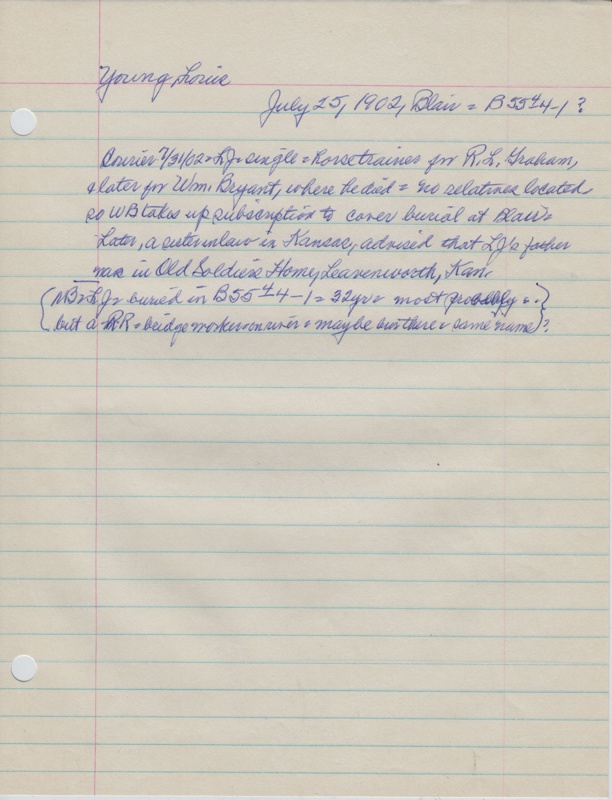 Young Louie
July 25, 1902, Blair = B 55 4-1 ?
Courier 7/31/02 = LY = single = horsetrainer for R.L. Graham,
& later for Wm. Bryant, where he died = no relatives located
so WB takes up subscription to cover burial at Blair =
Later, a sister in law in Kansas, advised that LY's father
was in Old Soldiers Home, Leavenworth, Kan.
(NB = LY = buried in B55 4-1 = 32 yr = most probably =
but a RR = bridge worker on river = maybe here = same name)?